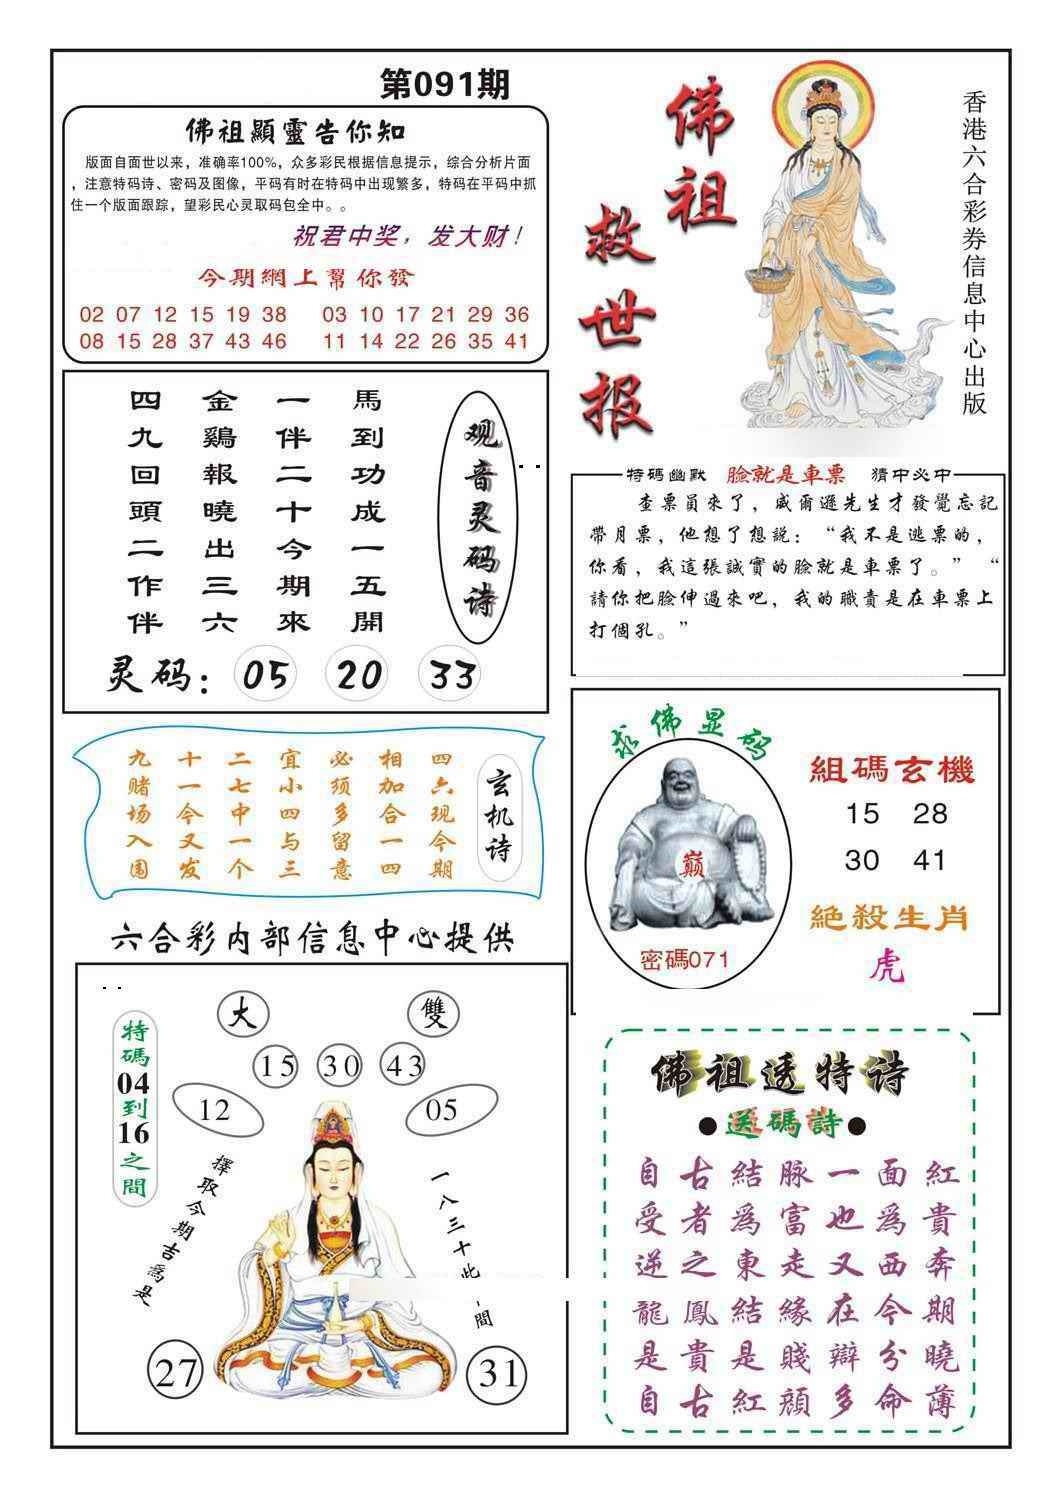 第091期
佛祖顯靈告你知
版面自面世以来，准确率100%，众多彩民根据信息提示，综合分析片面
，注意特码诗、密码及图像，平码有时在特码中出现繁多，特码在平码中抓
住一个版面跟踪，望彩民心灵取码包全中。。
祝君中奖，发大财！
今期網上幫你發
02 07 12 15 19 38 03 10 17 21 29 36
08 15 28 37 43 46 11 14 22 26 35 41
佛祖
救世报
香港六合彩券信息中心出版
观音灵码诗
馬到功成一五開
一伴二十今期來
金鷄報曉出三六
四九回頭二作伴
灵码：05 20 33
特碼幽默 臉就是車票 猜中必中
查票員來了，威爾遜先生才發覺忘記
帶月票，他想了想説：“我不是逃票的，
你看，我這張誠實的臉就是車票了。”“
請你把臉伸過來吧，我的職責是在車票上
打個孔。”
玄机诗
四六现今期
相加合一四
必须多留意
宜小四与三
二七中一个
十一今又发
九赌场入围
求佛显码
巅
密碼071
組碼玄機
15 28
30 41
絕殺生肖
虎
六合彩内部信息中心提供
特碼04到16之間
大 雙
15 30 43
12 05
擇取今期吉為是
一八三十此間
27 31
佛祖透特诗
●送碼詩●
自古結脉一面紅
受者為富也為貴
逆之東走又西奔
龍鳳結緣在今期
是貴是賤辯分曉
自古紅顔多命薄